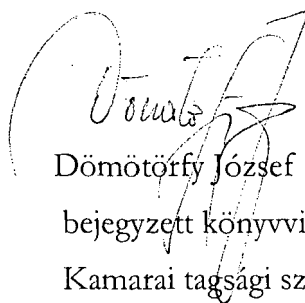 Dömötörfy József
bejegyzett könyvvi
Kamarai tagsági sz